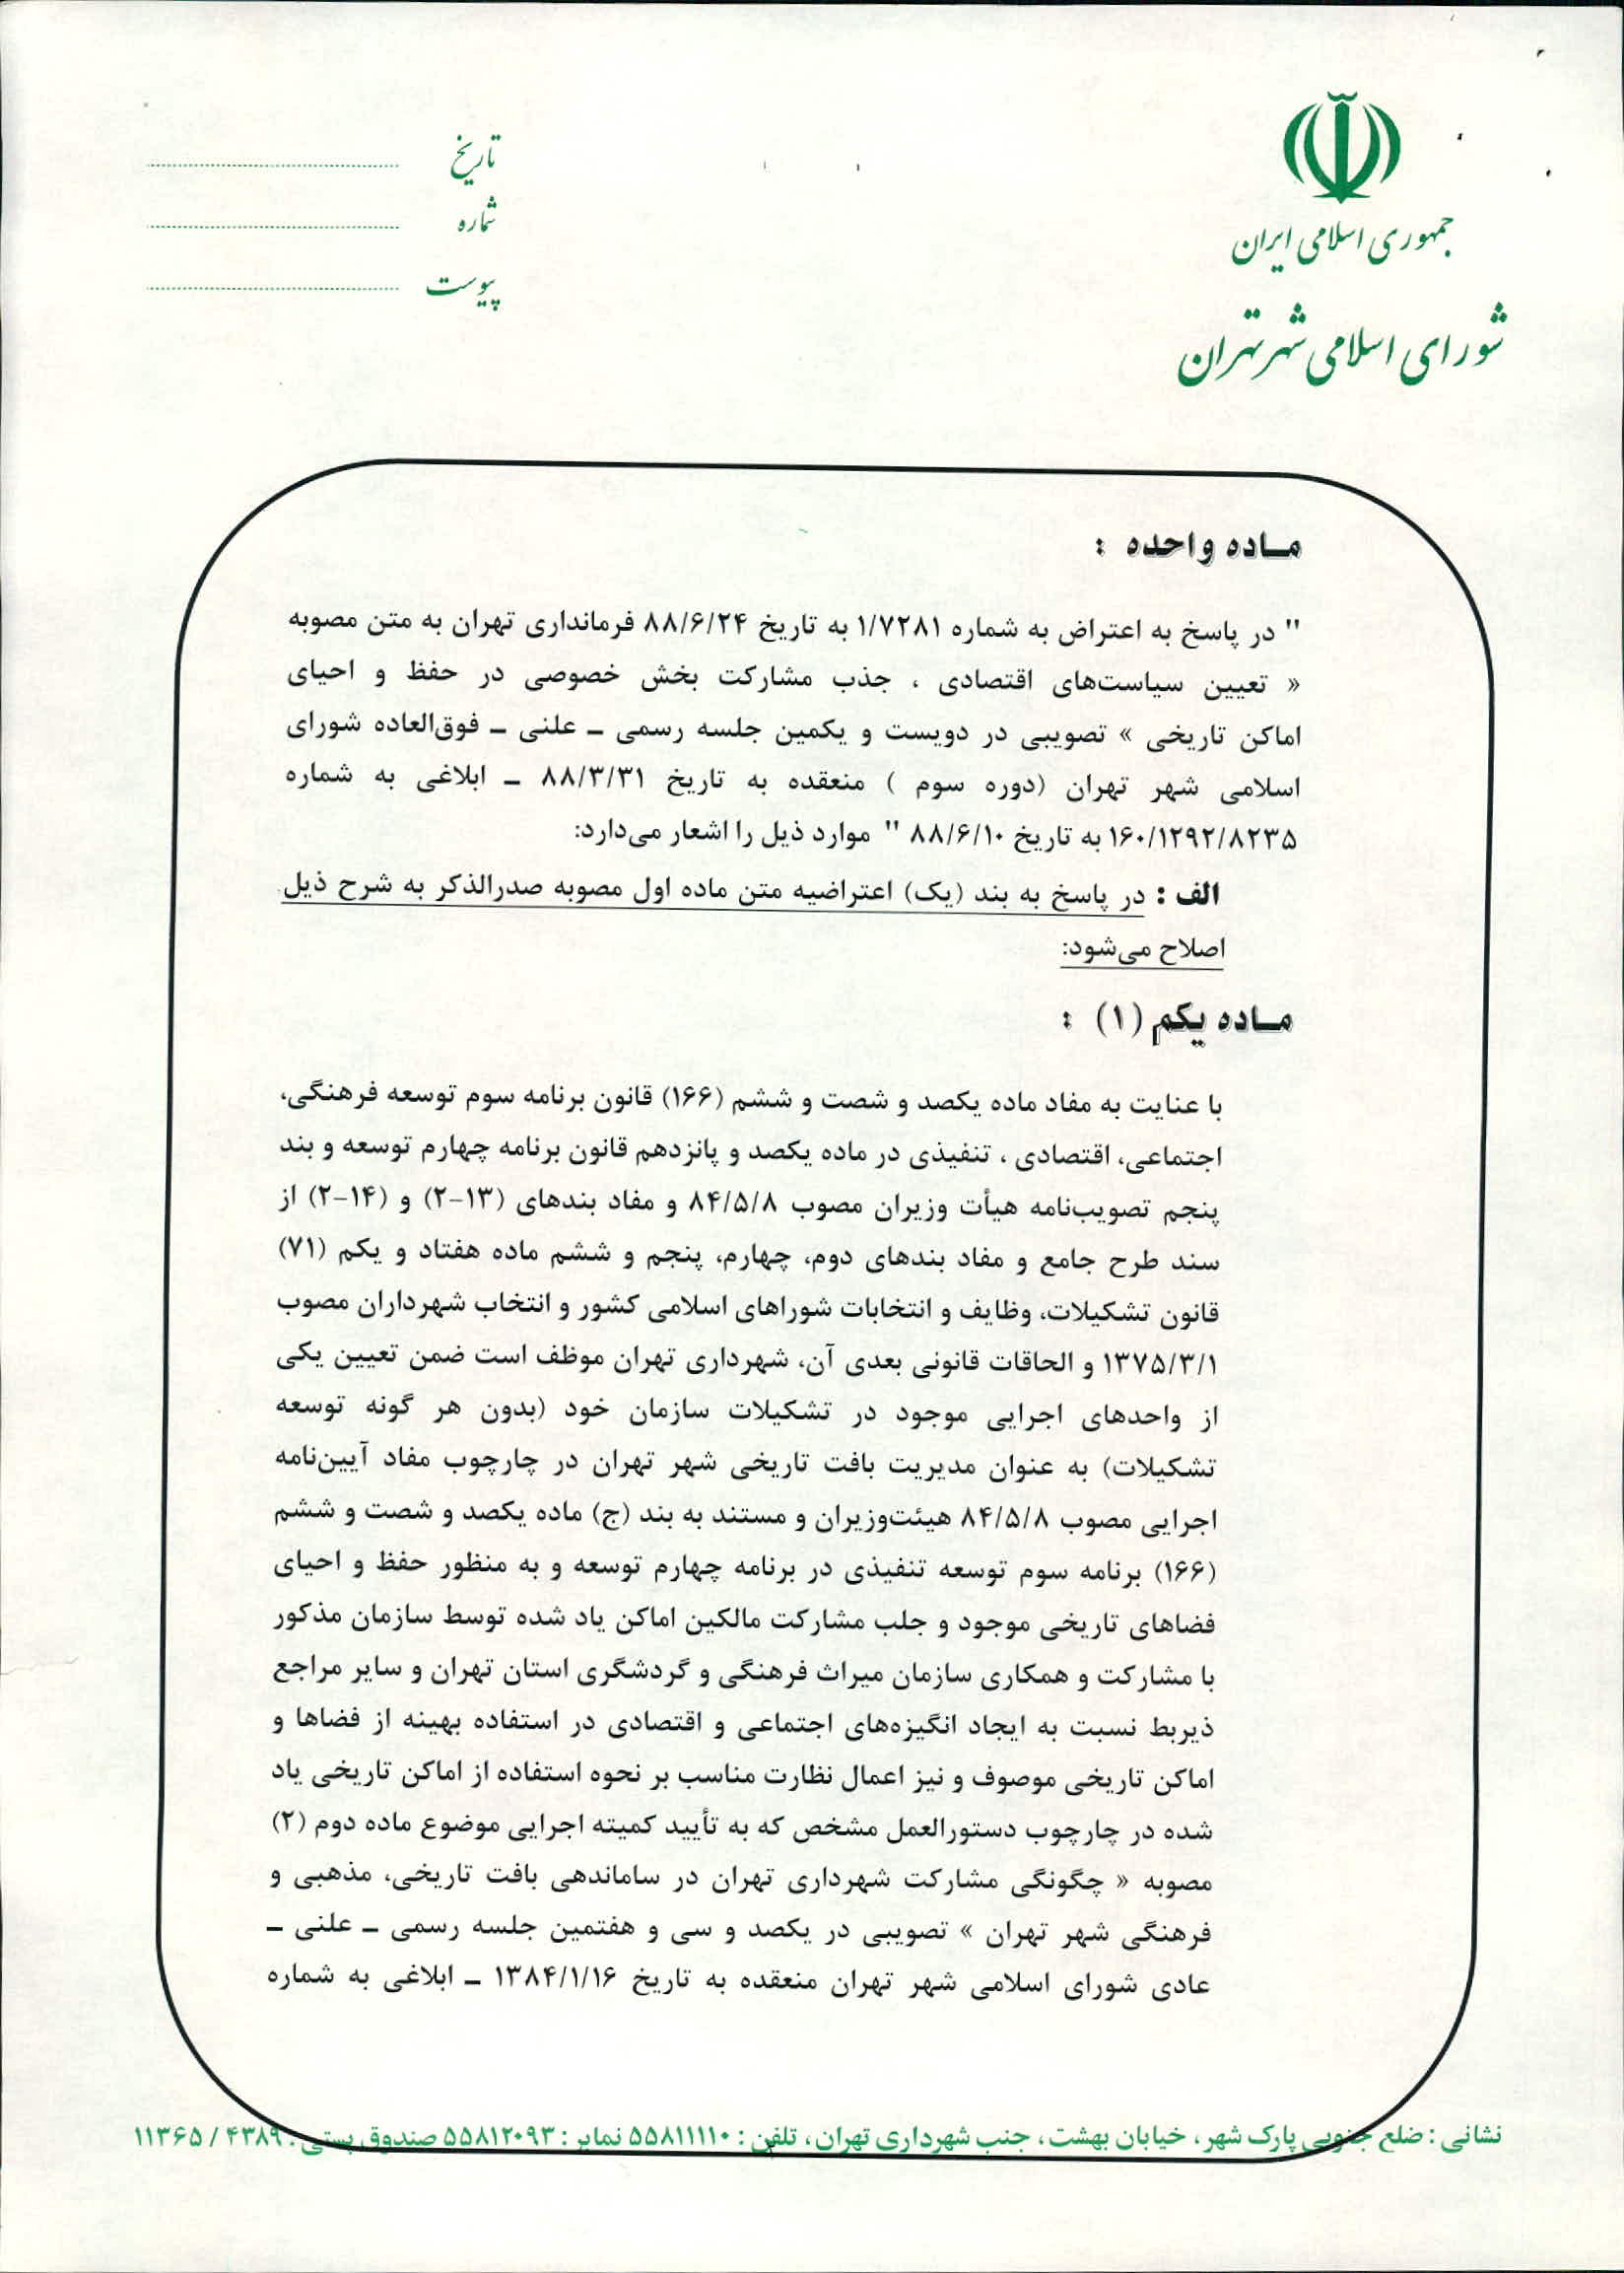 جمهوری اسلامی ایران
شورای اسلامی شهر تهران
تاریخ
شماره
پیوست
ماده واحده :
" در پاسخ به اعتراض به شماره ۱/۷۲۸۱ به تاریخ ۸۸/۶/۲۴ فرمانداری تهران به متن مصوبه
« تعیین سیاست‌های اقتصادی ، جذب مشارکت بخش خصوصی در حفظ و احیای
اماکن تاریخی » تصویبی در دویست و یکمین جلسه رسمی ـ علنی ـ فوق‌العاده شورای
اسلامی شهر تهران (دوره سوم ) منعقده به تاریخ ۸۸/۳/۳۱ ـ ابلاغی به شماره
۱۶۰/۱۲۹۲/۸۲۳۵ به تاریخ ۸۸/۶/۱۰ " موارد ذیل را اشعار می‌دارد:
الف : در پاسخ به بند (یک) اعتراضیه متن ماده اول مصوبه صدرالذکر به شرح ذیل
اصلاح می‌شود:
ماده یکم (۱) :
با عنایت به مفاد ماده یکصد و شصت و ششم (۱۶۶) قانون برنامه سوم توسعه فرهنگی،
اجتماعی، اقتصادی ، تنفیذی در ماده یکصد و پانزدهم قانون برنامه چهارم توسعه و بند
پنجم تصویب‌نامه هیأت وزیران مصوب ۸۴/۵/۸ و مفاد بندهای (۱۳-۲) و (۱۴-۲) از
سند طرح جامع و مفاد بندهای دوم، چهارم، پنجم و ششم ماده هفتاد و یکم (۷۱)
قانون تشکیلات، وظایف و انتخابات شوراهای اسلامی کشور و انتخاب شهرداران مصوب
۱۳۷۵/۳/۱ و الحاقات قانونی بعدی آن، شهرداری تهران موظف است ضمن تعیین یکی
از واحدهای اجرایی موجود در تشکیلات سازمان خود (بدون هر گونه توسعه
تشکیلات) به عنوان مدیریت بافت تاریخی شهر تهران در چارچوب مفاد آیین‌نامه
اجرایی مصوب ۸۴/۵/۸ هیئت‌وزیران و مستند به بند (ج) ماده یکصد و شصت و ششم
(۱۶۶) برنامه سوم توسعه تنفیذی در برنامه چهارم توسعه و به منظور حفظ و احیای
فضاهای تاریخی موجود و جلب مشارکت مالکین اماکن یاد شده توسط سازمان مذکور
با مشارکت و همکاری سازمان میراث فرهنگی و گردشگری استان تهران و سایر مراجع
ذیربط نسبت به ایجاد انگیزه‌های اجتماعی و اقتصادی در استفاده بهینه از فضاها و
اماکن تاریخی موصوف و نیز اعمال نظارت مناسب بر نحوه استفاده از اماکن تاریخی یاد
شده در چارچوب دستورالعمل مشخص که به تأیید کمیته اجرایی موضوع ماده دوم (۲)
مصوبه « چگونگی مشارکت شهرداری تهران در ساماندهی بافت تاریخی، مذهبی و
فرهنگی شهر تهران » تصویبی در یکصد و سی و هفتمین جلسه رسمی ـ علنی ـ
عادی شورای اسلامی شهر تهران منعقده به تاریخ ۱۳۸۴/۱/۱۶ ـ ابلاغی به شماره
نشانی : ضلع جنوبی پارک شهر، خیابان بهشت، جنب شهرداری تهران، تلفن : ۵۵۸۱۱۱۱۰ نمابر : ۵۵۸۱۲۰۹۳ صندوق پستی : ۴۳۸۹ / ۱۱۳۶۵